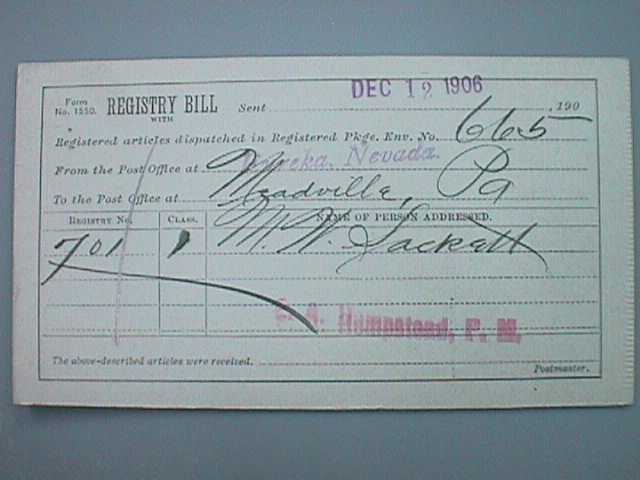 DEC 12 1906
Form No. 1550. REGISTRY BILL WITH Sent , 190
Registered articles dispatched in Registered Pkge. Env. No. 665
From the Post Office at Eureka, Nevada.
To the Post Office at Meadville, Pa
REGISTRY No. CLASS. NAME OF PERSON ADDRESSED.
701 1 M. W. Sackett
C. A. Hempstead, P. M.
The above-described articles were received.
Postmaster.